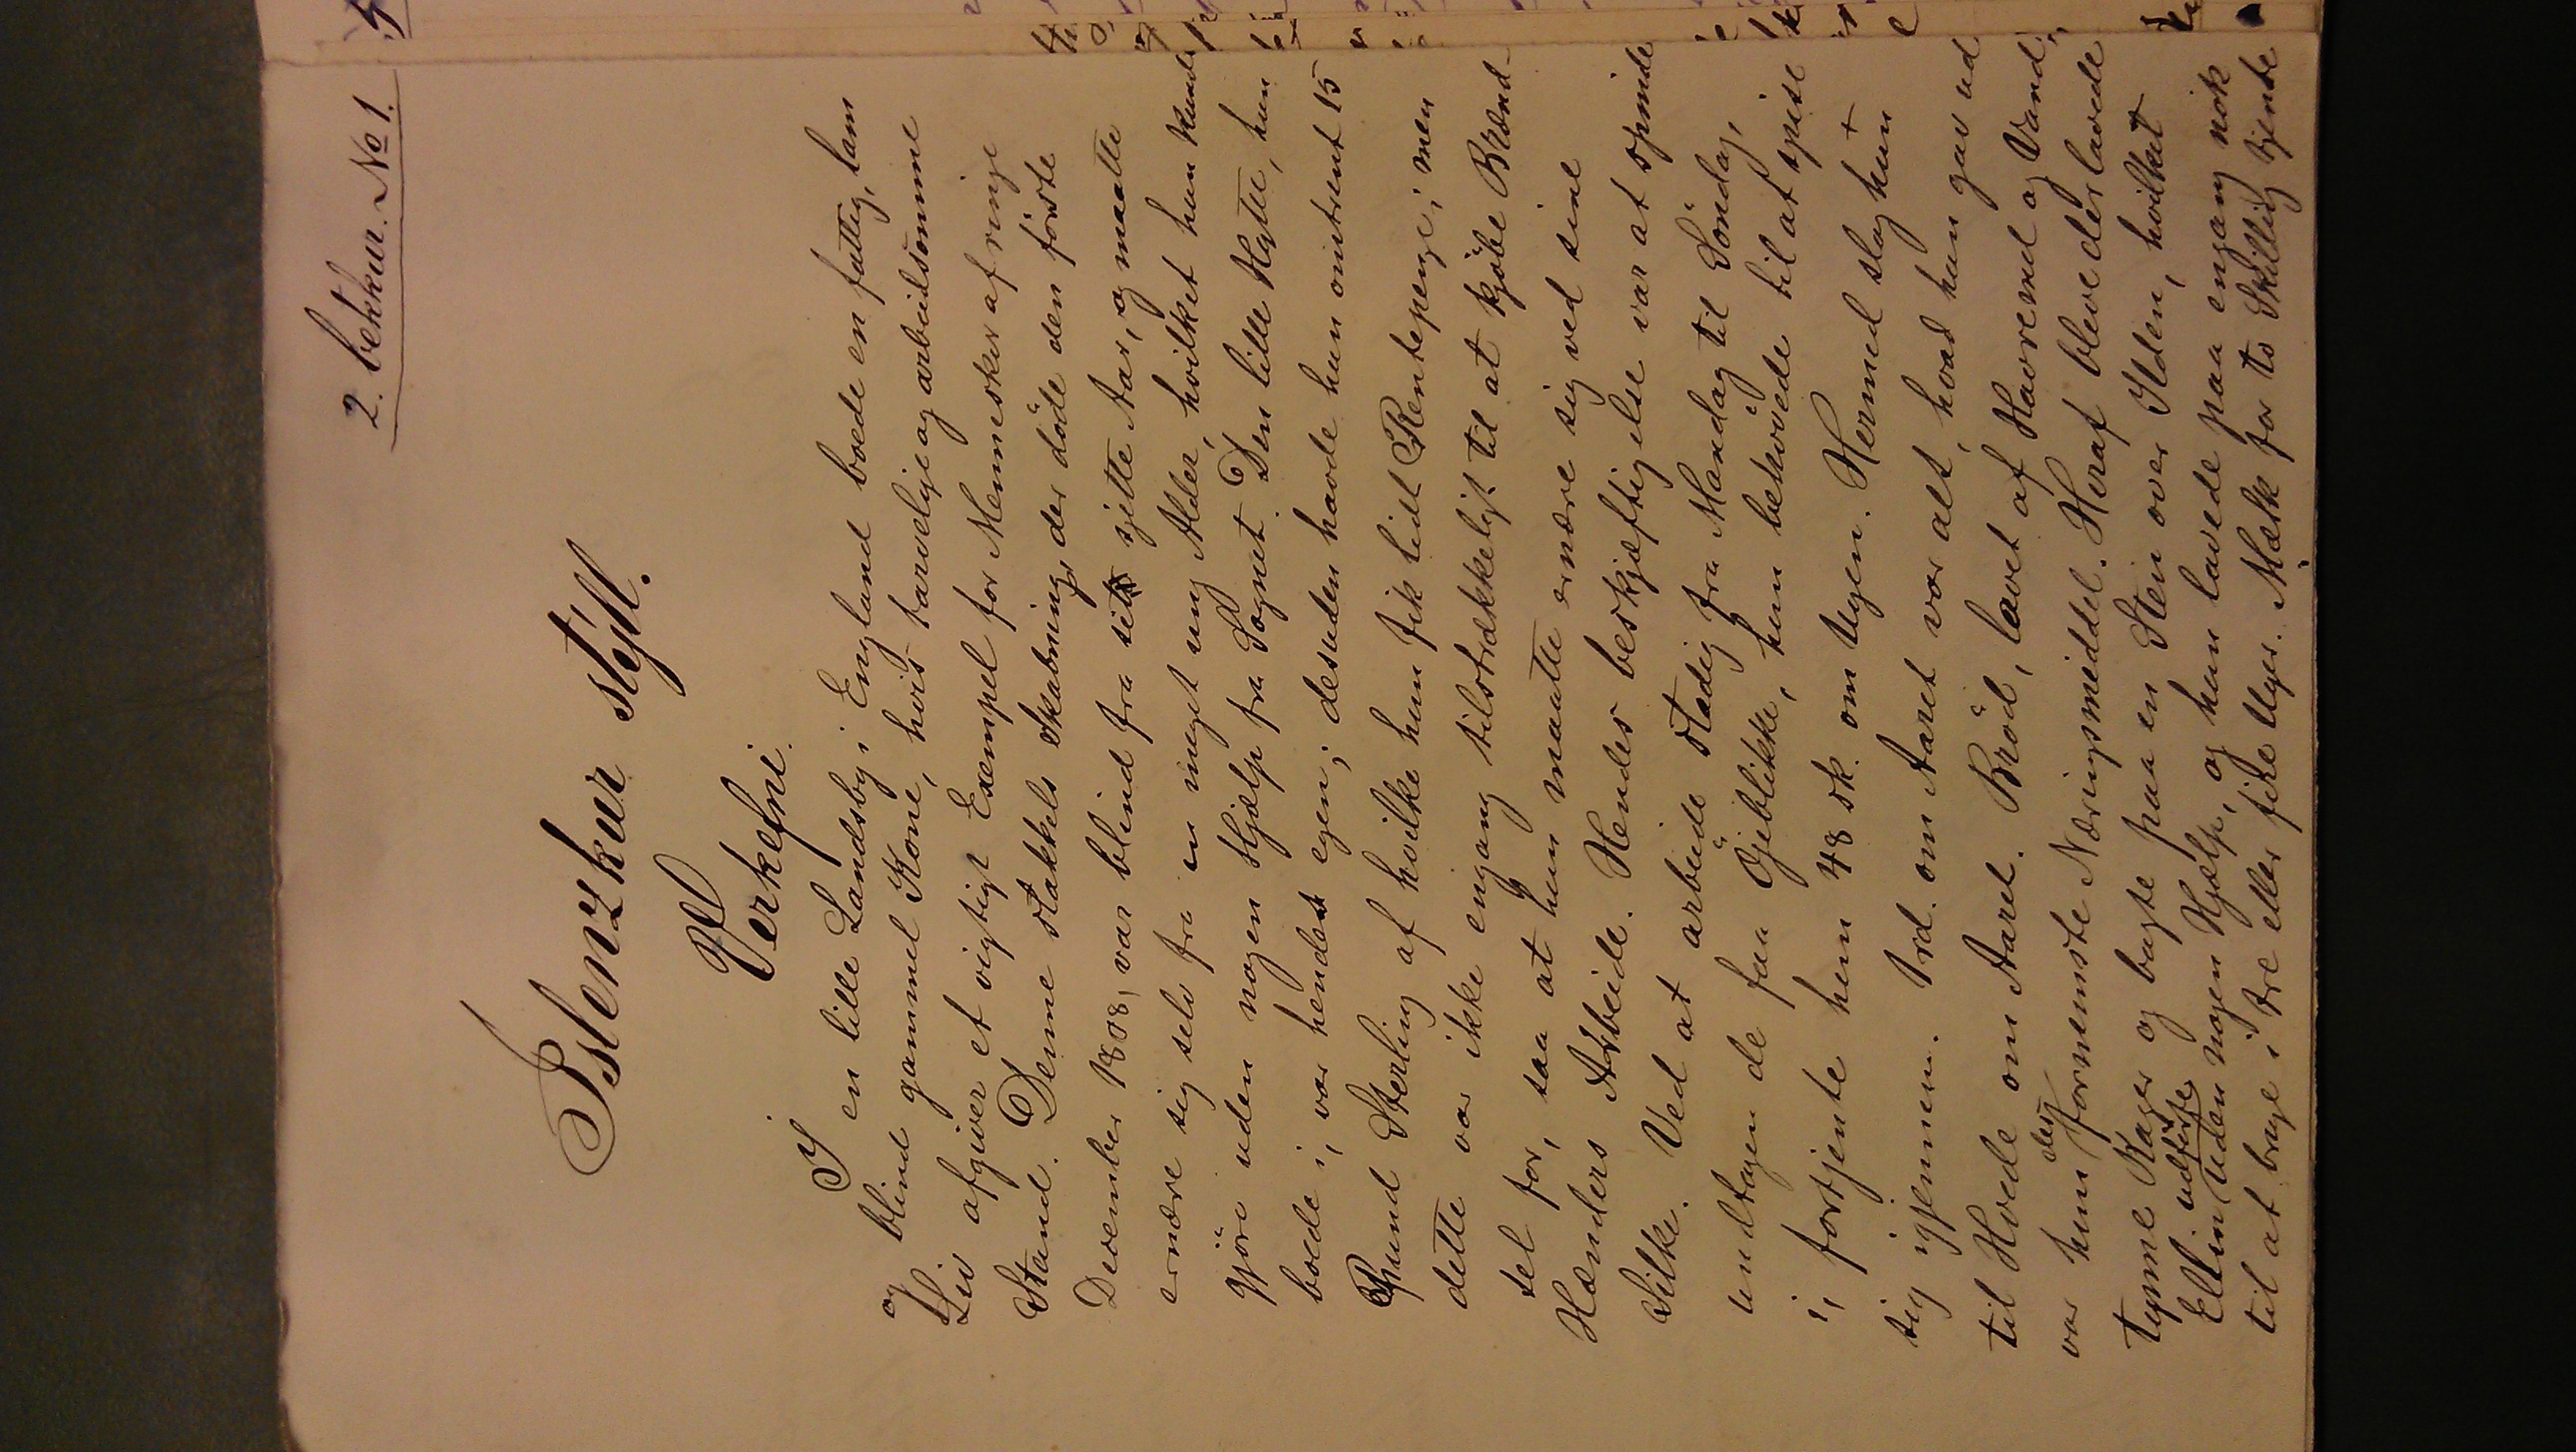 2. bekkur. No 1.
Íslenzkur stýll.
Verkefni.
I en lille Landsby i England boede en fattig, lam
og blind gammel Kone, hvis tarvelige og arbeidsomme
Liv afgiver et vigtigt Exempel for Mennesker af ringe
Stand. Denne stakkels Skabning, der döde den förste
December 1808, var blind fra sit sjette Aar, og maatte
ernære sig selv fra en meget ung Alder, hvilket hun kunde
gjöre uden nogen Hjælp fra Sognet. Den lille Hytte, hun
boede i, var hendes egen; desuden havde hun omtrent 15
Pund Sterling af hvilke hun fik lidt Rentepenge; men
dette var ikke engang tilstrækkeligt til at kjöbe Brænd-
sel for, saa at hun maatte ernære sig ved sine
Hænders Arbeide. Hendes beskjæftigelse var at spinde
Silke. Ved at arbeide stadig fra Mandag til Söndag,
undtagen de faa Öjeblikke, hun behövede til at spise
i, fortjente hun 48 sk. om Ugen. Hermed slog hun
sig igjennem. 1 rd. om Aaret var alt, hvad hun gav ud
til Hvede om Aaret. Bröd, lavet af Havremel og Vand,
var hendes fornemste Næringsmiddel. Heraf bleve der lavede
tynne Kager og bagte paa en Sten over Ilden, hvilket
Ellin udförte uden nogen Hjælp, og hun lavede paa engang nok
til at bruge i tre eller fire Uger. Mælk for to Skilling tjente